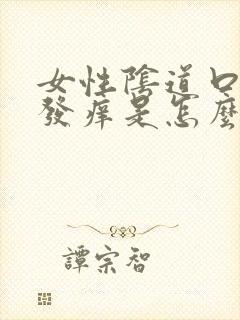 女性陰道口
發痒是怎麼
譚宗智